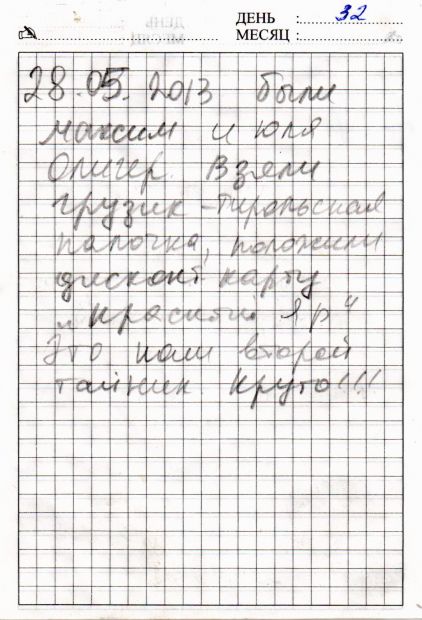 ДЕНЬ : 32
МЕСЯЦ :
28.05.2013 были
максим и юля
Олигер. Взяли
грузик - тирольская
палочка, положили
дисконт карту
„Красный Яр“
Это наш второй
тайник Круто!!!